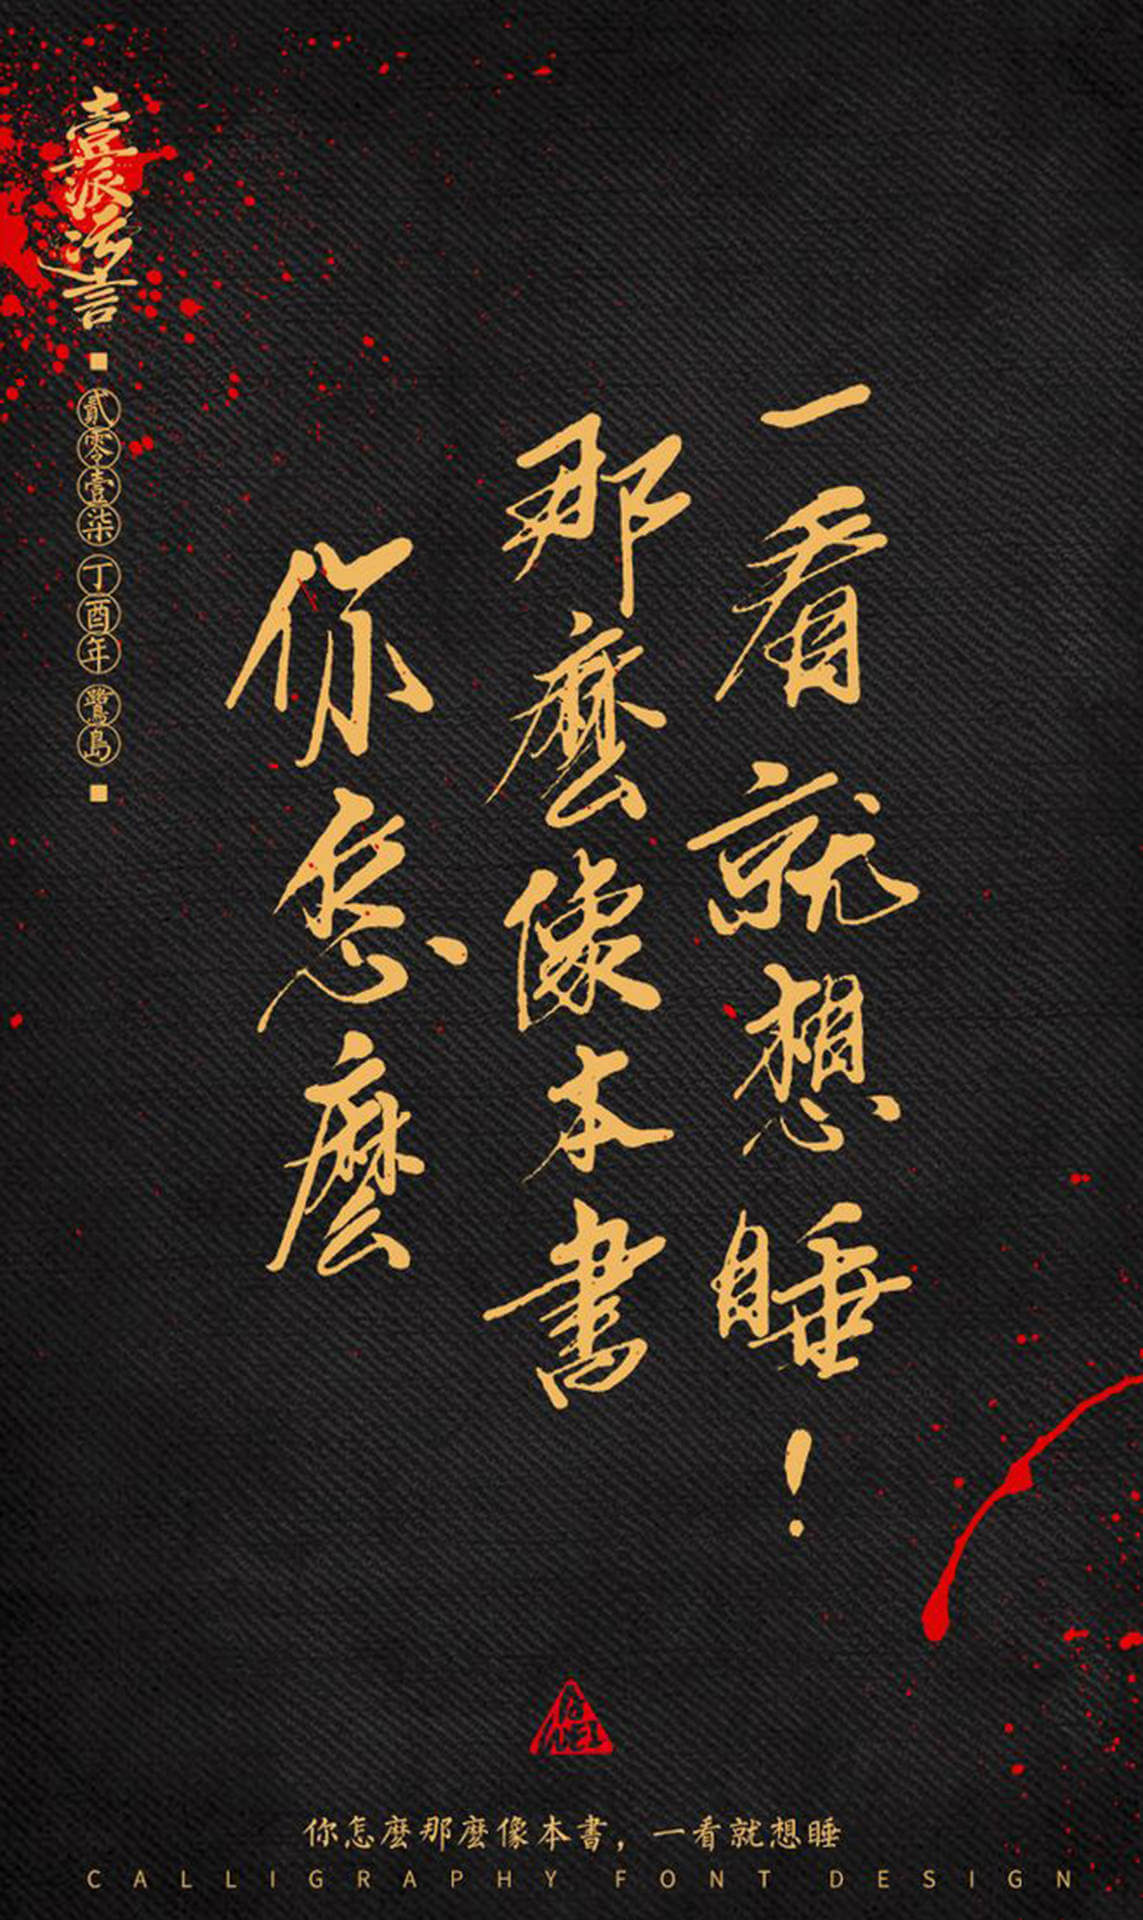 壹派污言
貳零壹柒 丁酉年 鷺島
你怎麼
那麼像本書
一看就想睡！
你怎麼那麼像本書，一看就想睡
CALLIGRAPHY FONT DESIGN